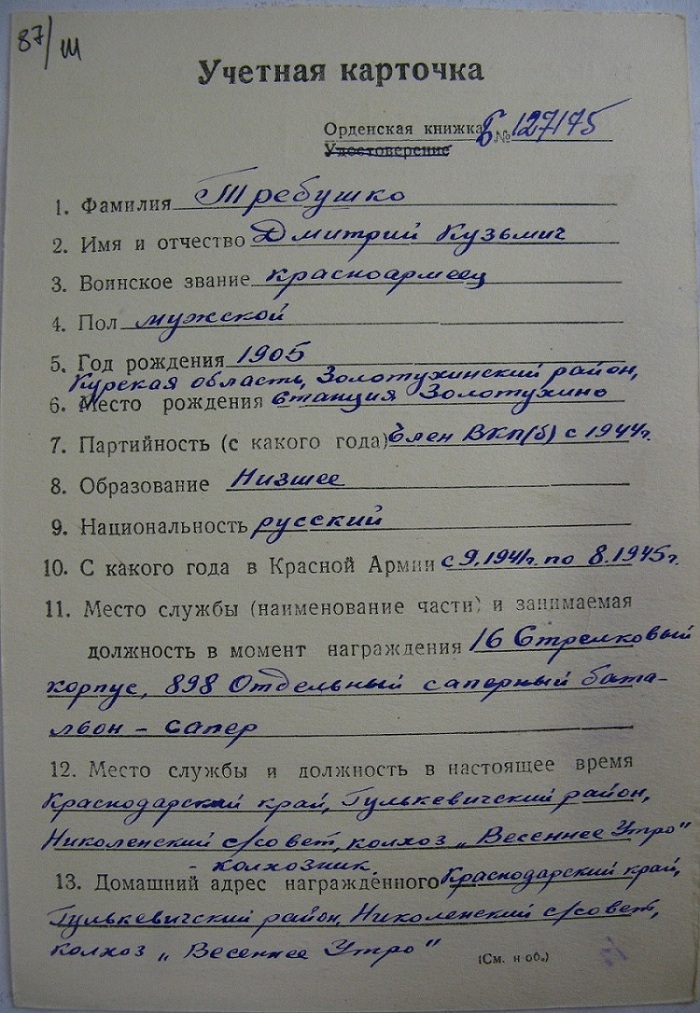 87/Ш
Учетная карточка
Орденская книжка Б № 127175
Удостоверение
1. Фамилия Требушко
2. Имя и отчество Дмитрий Кузьмич
3. Воинское звание красноармеец
4. Пол мужской
5. Год рождения 1905
Курская область, Золотухинский район,
6. Место рождения станция Золотухино
7. Партийность (с какого года) Член ВКП(б) с 1944г.
8. Образование Низшее
9. Национальность русский
10. С какого года в Красной Армии с 9.1941г. по 8.1945г.
11. Место службы (наименование части) и занимаемая
должность в момент награждения 16 Стрелковый
корпус, 898 Отдельный саперный бата-
льон - сапер
12. Место службы и должность в настоящее время
Краснодарский край, Гулькевичский район,
Николенский с/совет, колхоз „Весеннее Утро"
- колхозник.
13. Домашний адрес награждённого Краснодарский край,
Гулькевичский район, Николенский с/совет,
колхоз „Весеннее Утро"
(См. н об.)